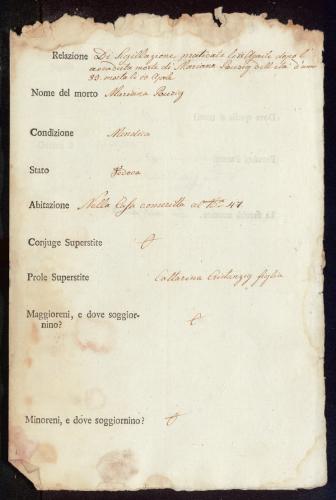 Relazione Di Sigillazione praticata li 11 Aprile dopo l'
accaduta morte di Mariana Pauzig dell'età d'anni
83. morta li 10 Aprile
Nome del morto Mariana Pauzig
Condizione Mendica
Stato Vedova
Abitazione Nella Casa conscritta al No. 47
Conjuge Superstite
Prole Superstite Cattarina Cristanzig figlia
Maggioreni, e dove soggior-
nino?
Minoreni, e dove soggiornino?